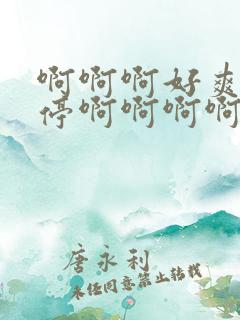 啊啊啊好爽
停啊啊啊啊
唐永利
未经同意禁止转载